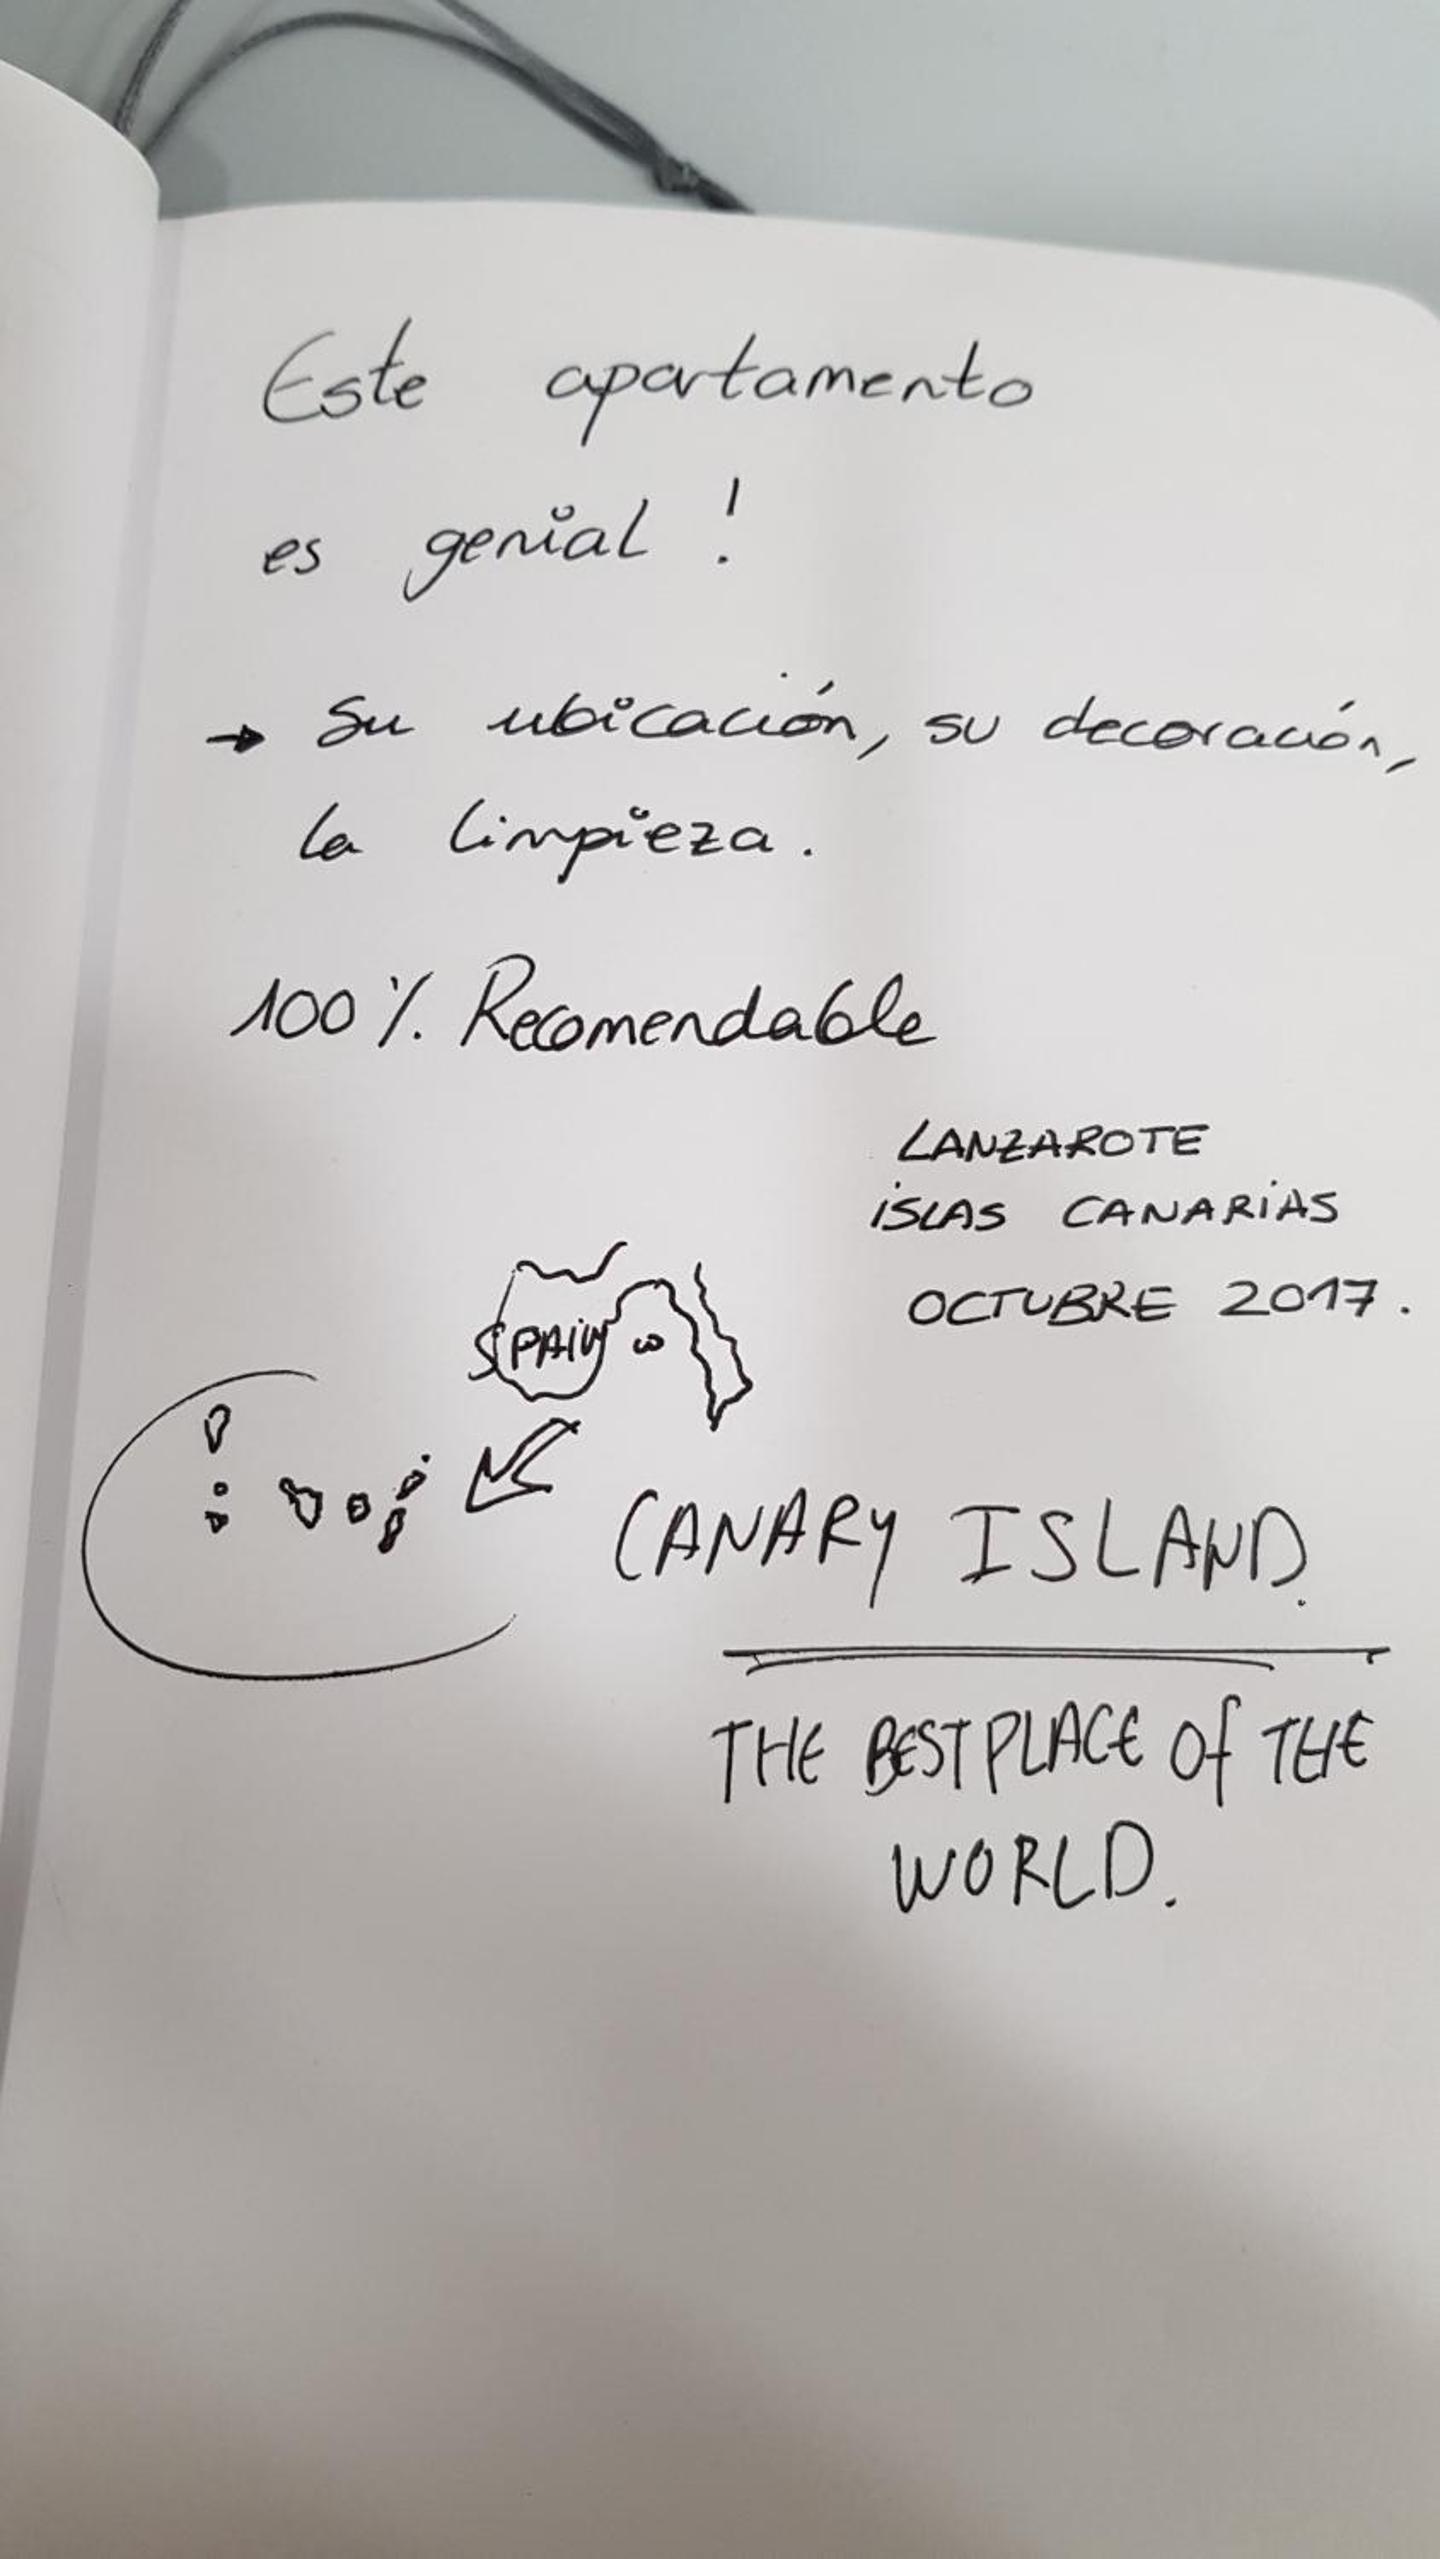 Este apartamento
es genial !
→ Su ubicación, su decoración,
la limpieza.
100 % Recomendable
LANZAROTE
ISLAS CANARIAS
OCTUBRE 2017.
SPAIN
CANARY ISLAND.
THE BEST PLACE of THE
WORLD.